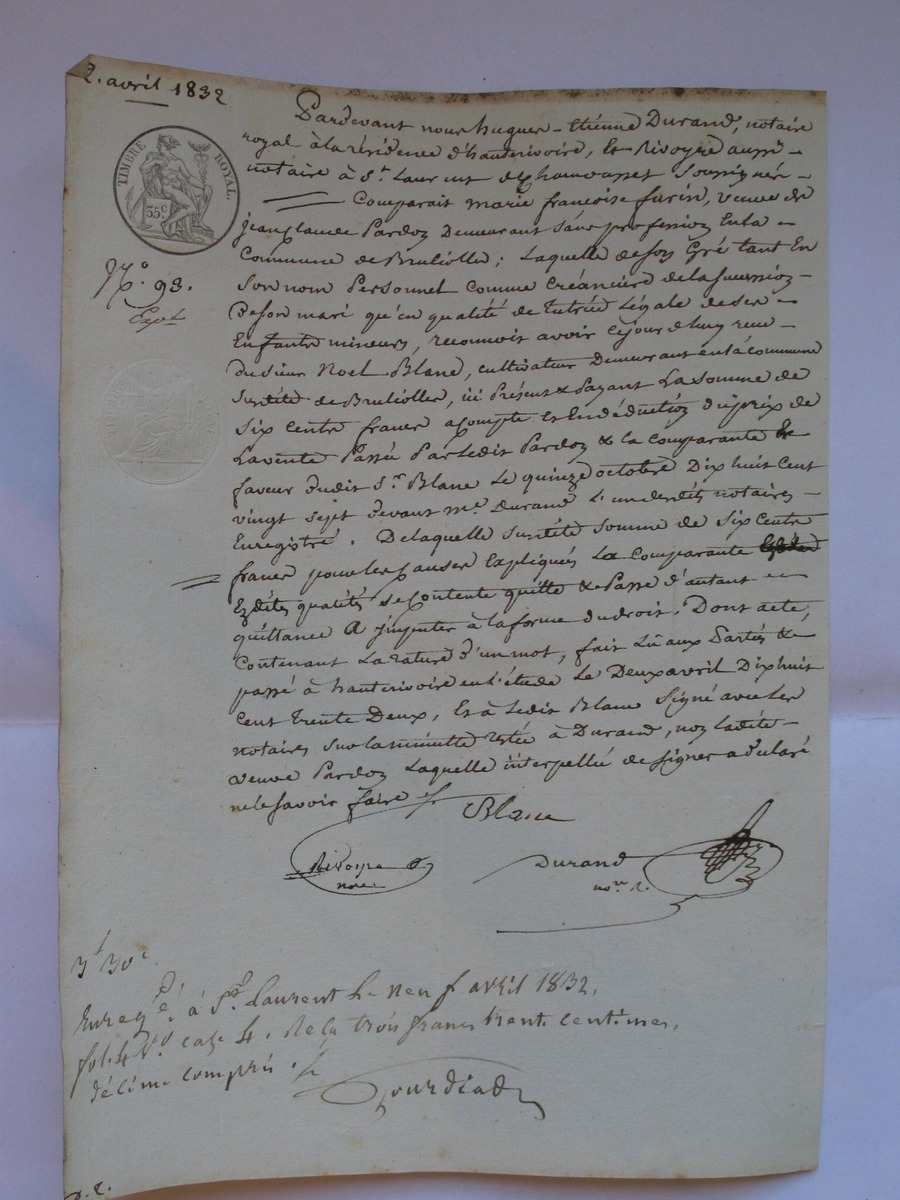 2. avril 1832
TIMBRE ROYAL
35c
N.o 93.
Expt
Pardevant nous hugues-Etienne Durand, notaire
royal à la résidence d'hauterivoire, Et Rivoyre aussi
notaire à St. Laurent de chamousset soussignés
Comparait marie françoise furin, veuve de
jean claude Pardon Demeurant sans profession En la
Commune de Brulioller; Laquelle de son Gré tant En
Son nom Personnel comme créancière de la succession
De son mari qu'en qualité de Tutrice Légale de ses
Enfants mineurs, reconnoit avoir cejourd'huy reçu
du sieur Noel Blanc, cultivateur Demeurant en la commune
Susdite de Brulioller, ici Présent & Payant La somme de
Six Cents francs acompte et En déduction du prix de
La vente Passée Par Ledit Pardon & la comparante En
faveur dudit Sr. Blanc Le quinze octobre Dix huit Cent
vingt Sept devant me. Durand L'un desdits notaires
Enregistré. De laquelle susdite somme de Six Cents
francs pour les causes Expliquées La comparante
Ezdites qualités se Contente quitte & Passe d'autant
quittance A jmputer à la forme du droit. Dont acte,
Contenant La rature d'un mot, fait Lû aux Parties &
passé à hauterivoire en L'étude Le Deux avril Dix huit
Cent Trente Deux, Et à Ledit Blanc Signé avec Les
notaires Sur la minutte restée à Durand, non Ladite
veuve Pardon Laquelle interpellée de signer a déclaré
ne le savoir faire
Blanc
Rivoyre
nore
Durand
nore. R.
3f 30c.
Enregé. à St. Laurent le neuf avril 1832.
fol. 4 Vo. case 4. Reçu trois francs trente centimes,
décime compris.